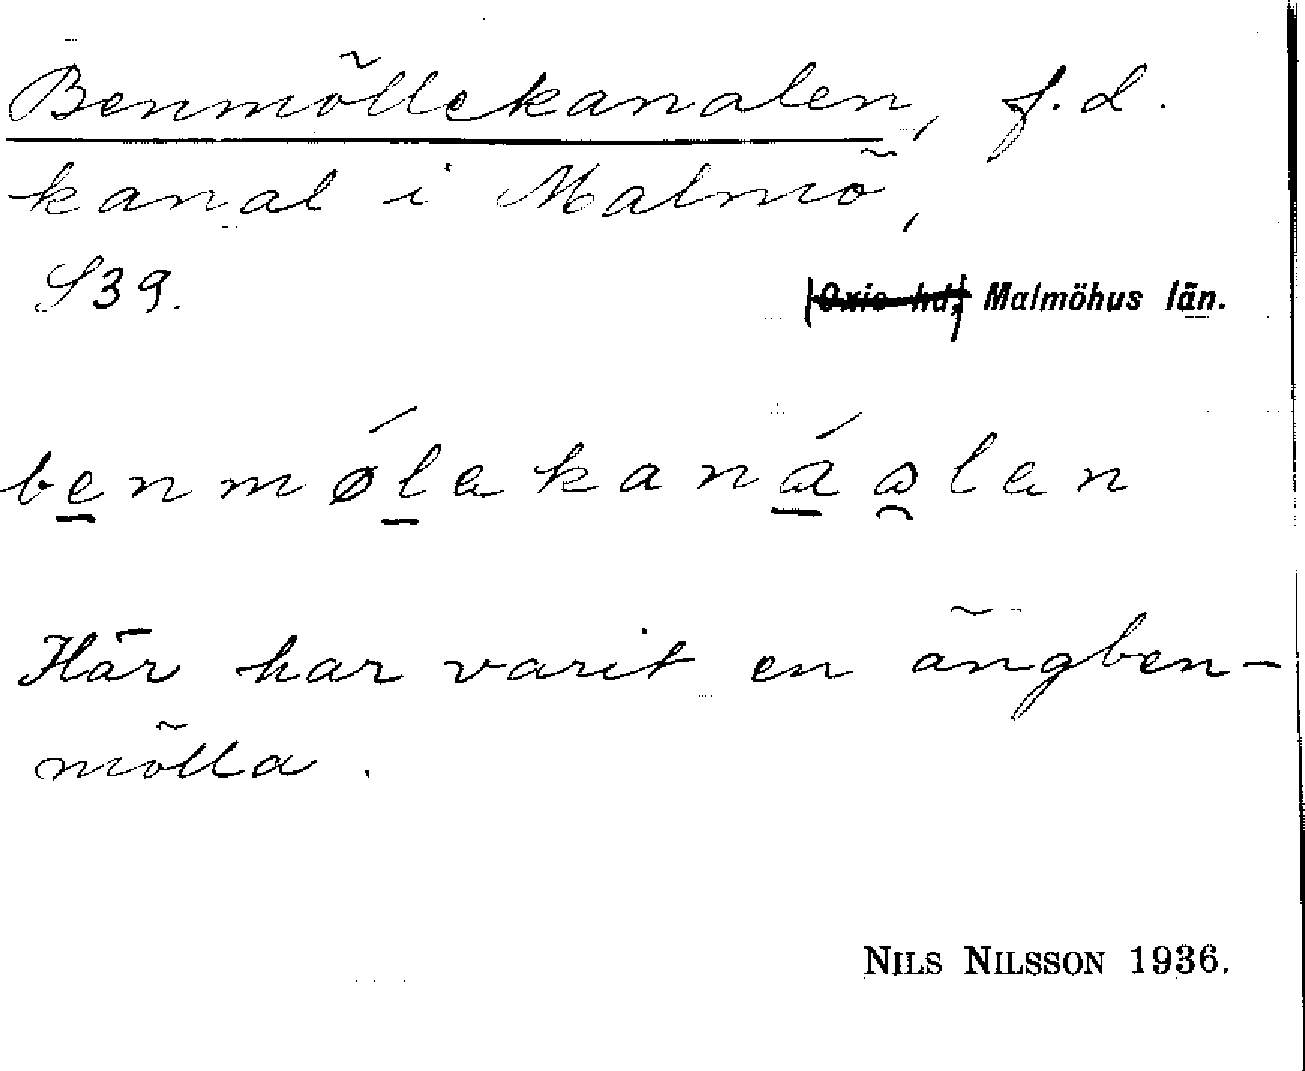 Benmöllekanalen, f.d.
kanal i Malmö,
S39.
Oxie hd, Malmöhus län.
benmølekanáalen
Här har varit en ångben-
mölla.
NILS NILSSON 1936.